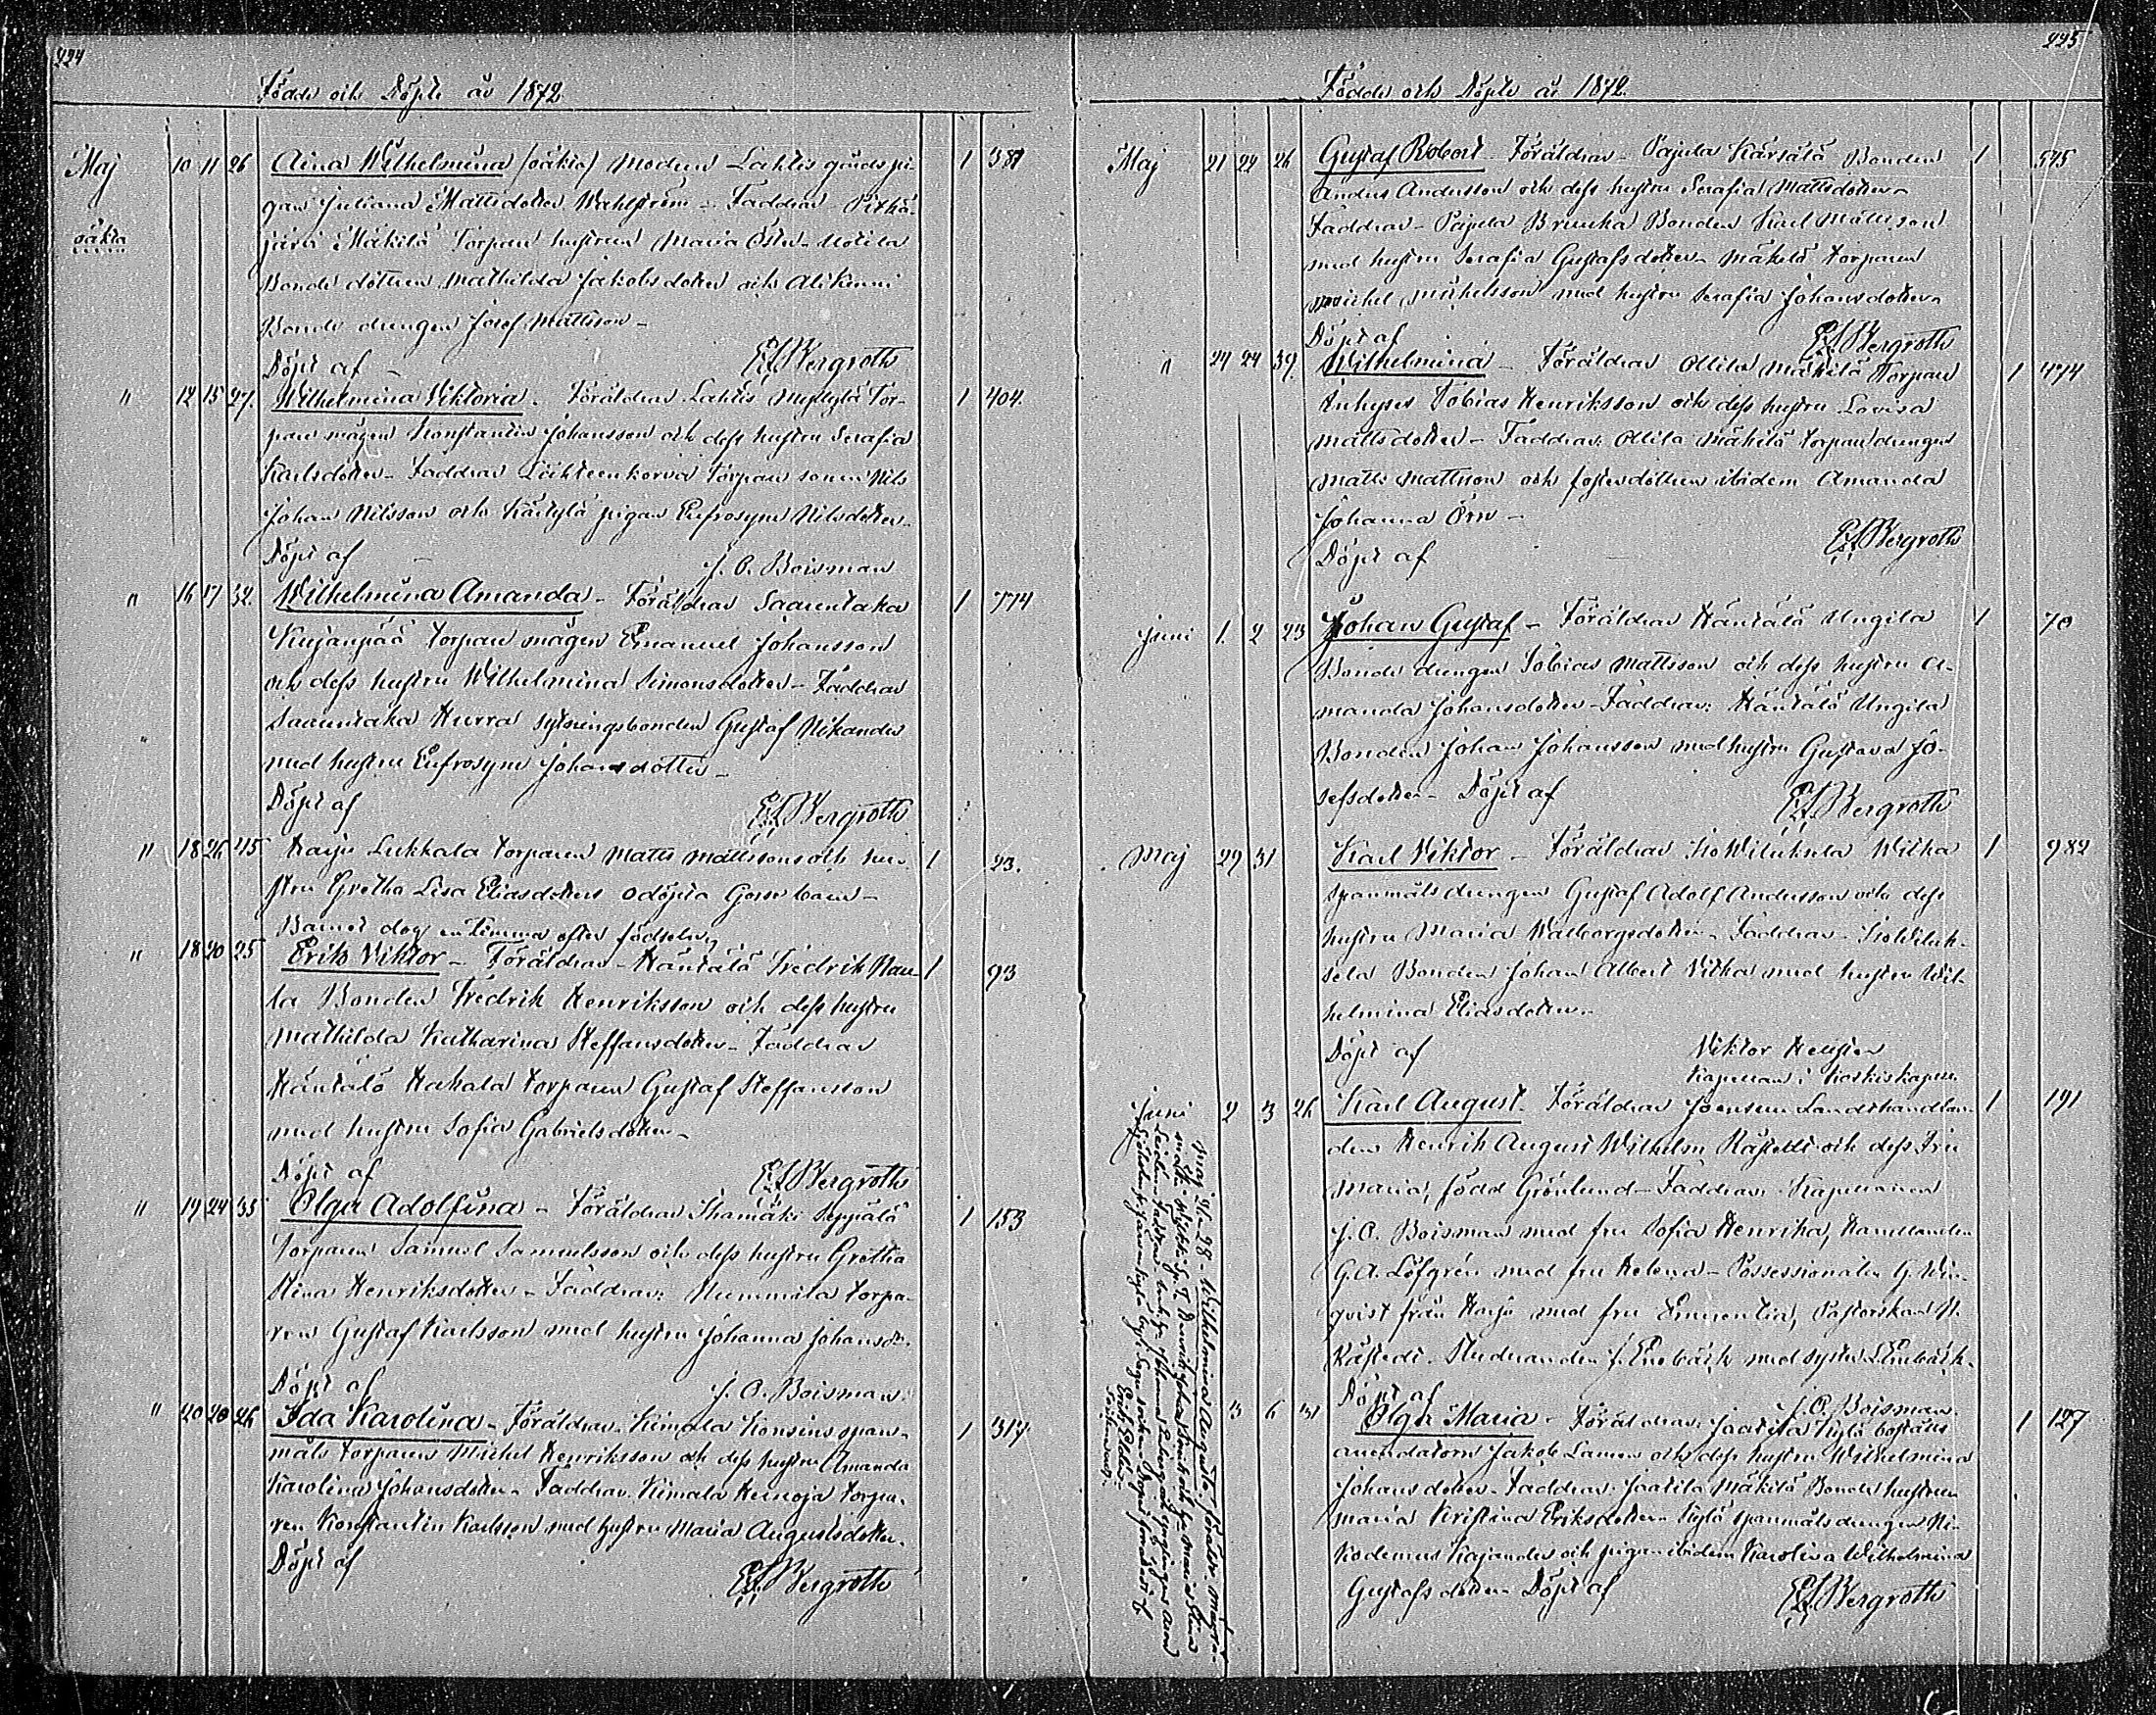 224
Födde och Döpte år 1872
Maj 10 11 26 Aina Wilhelmina (oäkta) Modren Lahtis gårds pi- 1 381
gan Juliana Mattsdotter Wahlström - Faddrar Pitkä-
oäkta järvi Mäkilä Torpare hustrun Maria Öster
Bonde dottren Mathilda Jakobsdotter och Alikinni
Bonde drengen Josef Mattsson -
Döpt af - E. J. Bergroth
" 12 15 27. Wilhelmina Viktoria. Föräldrar Lahtis Myllylä Tor- 1 404.
pare mågen Konstantin Johansson och dess hustru Serafia
Karlsdotter - Faddrar Lähteenkorva Torpare sonen Nils
Johan Nilsson och pigan Eufrosyne Nilsdotter
Döpt af - J. O. Boisman
" 16 17 32. Wilhelmina Amanda - Föräldrar Saarentaka 1 774
Kujanpää torpare mågen Emanuel Johansson
och dess hustru Wilhelmina Simonsdotter - Faddrar
Saarentaka Hurra sytningsbonden Gustaf Nikander
med hustru Eufrosyne Johansdotter -
Döpt af E. J. Bergroth
" 18 26 45 Harju Lukkala torparen Matts Mattssons och hu- 1 23.
stru Gretha Lisa Eliasdotters odöpta Gosse barn -
Barnet dog en Timma efter födseln
" 18 20 25 Erik Viktor - Föräldrar - Häntälä Fredrik Nau- 1 93
la Bonden Fredrik Henriksson och dess hustru
Mathilda Katharina Steffansdotter - Faddrar
Häntälä Hakala torparen Gustaf Steffansson
med hustru Sofia Gabrielsdotter -
Döpt af E. J. Bergroth
" 19 24 33 Olga Adolfina - Föräldrar Ihamäki Seppälä 1 153
Torparen Samuel Samuelsson och dess hustru Gretha
Stina Henriksdotter - Faddrar: Nummila torpa-
ren Gustaf Karlsson med hustru Johanna Johansdr.
Döpt af J. O. Boisman.
" 20 20 26 Ida Karolina - Föräldrar Kimala Konsins span- 1 317
måls torparen Michel Henriksson och dess hustru Amanda
Karolina Johansdotter - Faddrar Kimala Heinoja torpa-
ren Konstantin Karlsson med hustru Maria Augustsdotter.
Döpt af E. J. Bergroth
225
Födde och Döpte år 1872.
Maj 21 22 26 Gustaf Robert - Föräldrar - Pajula Kärsälä Bonden 1 575
Anders Andersson och dess hustru Serafia Mattsdotter -
Faddrar - Pajula Bruuka Bonden Karl Mattsson
med hustru Serafia Gustafsdotter - Mäkelä torparen
Michel Michelsson med hustru Serafia Johansdotter -
Döpt af E. J. Bergroth
" 24 24 39. Wilhelmina - Föräldrar Ollila Mäkilä Torpare 1 474
Inhyses Tobias Henriksson och dess hustru Lovisa
Mattsdotter - Faddrar: Ollila Mäkilä torpare drengen
Matts Mattsson och fosterdottren ibidem Amanda
Johanna Örn -
Döpt af E. J. Bergroth
Juni 1. 2 23 Johan Gustaf - Föräldrar Häntälä Ungila 1 70
Bonde drengen Tobias Mattsson och dess hustru A-
manda Johansdotter - Faddrar: Häntälä Ungila
Bonden Johan Johansson med hustru Gustava Jo-
sefsdotter - Döpt af E. J. Bergroth
Maj 29 31 Karl Viktor - Föräldrar Iso Wiluksela Witka 1 982
spanmåls drengen Gustaf Adolf Andersson och dess
hustru Maria Walborgsdotter - Faddrar - Iso Wiluk-
sela Bonden Johan Albert Vitka med hustru Wil-
helmina Eliasdotter -
Döpt af Viktor Hellsten
Kapellan i Koskis kapell.
Juni 2 3 26 Karl August. Föräldrar Joensuu Landthandlan- 1 191
den Henrik August Wilhelm Råstedt och dess Fru
Maria, född Grönlund - Faddrar: Kapellanen
J. O. Boisman med fru Sofia Henrika, Handlanden
G. A. Löfgrén med fru Helena - Possessionaten G. Win-
qvist från Harju med fru Emerentia, Pastorskan H.
Råstedt. Studeranden J. Enebäck med syster E. Enebäck.
Döpt af J. O. Boisman.
3 6 31 Olga Maria - Föräldrar: Jaatila Kylä boställs 1 127
arrendatorn Jakob Lauren och dess hustru Wilhelmina
Johansdotter - Faddrar: Jaatila Mäkilä Bonde hustrun
Maria Kristina Eriksdotter - Kylä spanmålsdrengen Ni-
kodemus Kajander och pigan ibidem Karolina Wilhelmina
Gustafsdotter - Döpt af E. J. Bergroth
Maj 21-28 - Wilhelmina Augusta